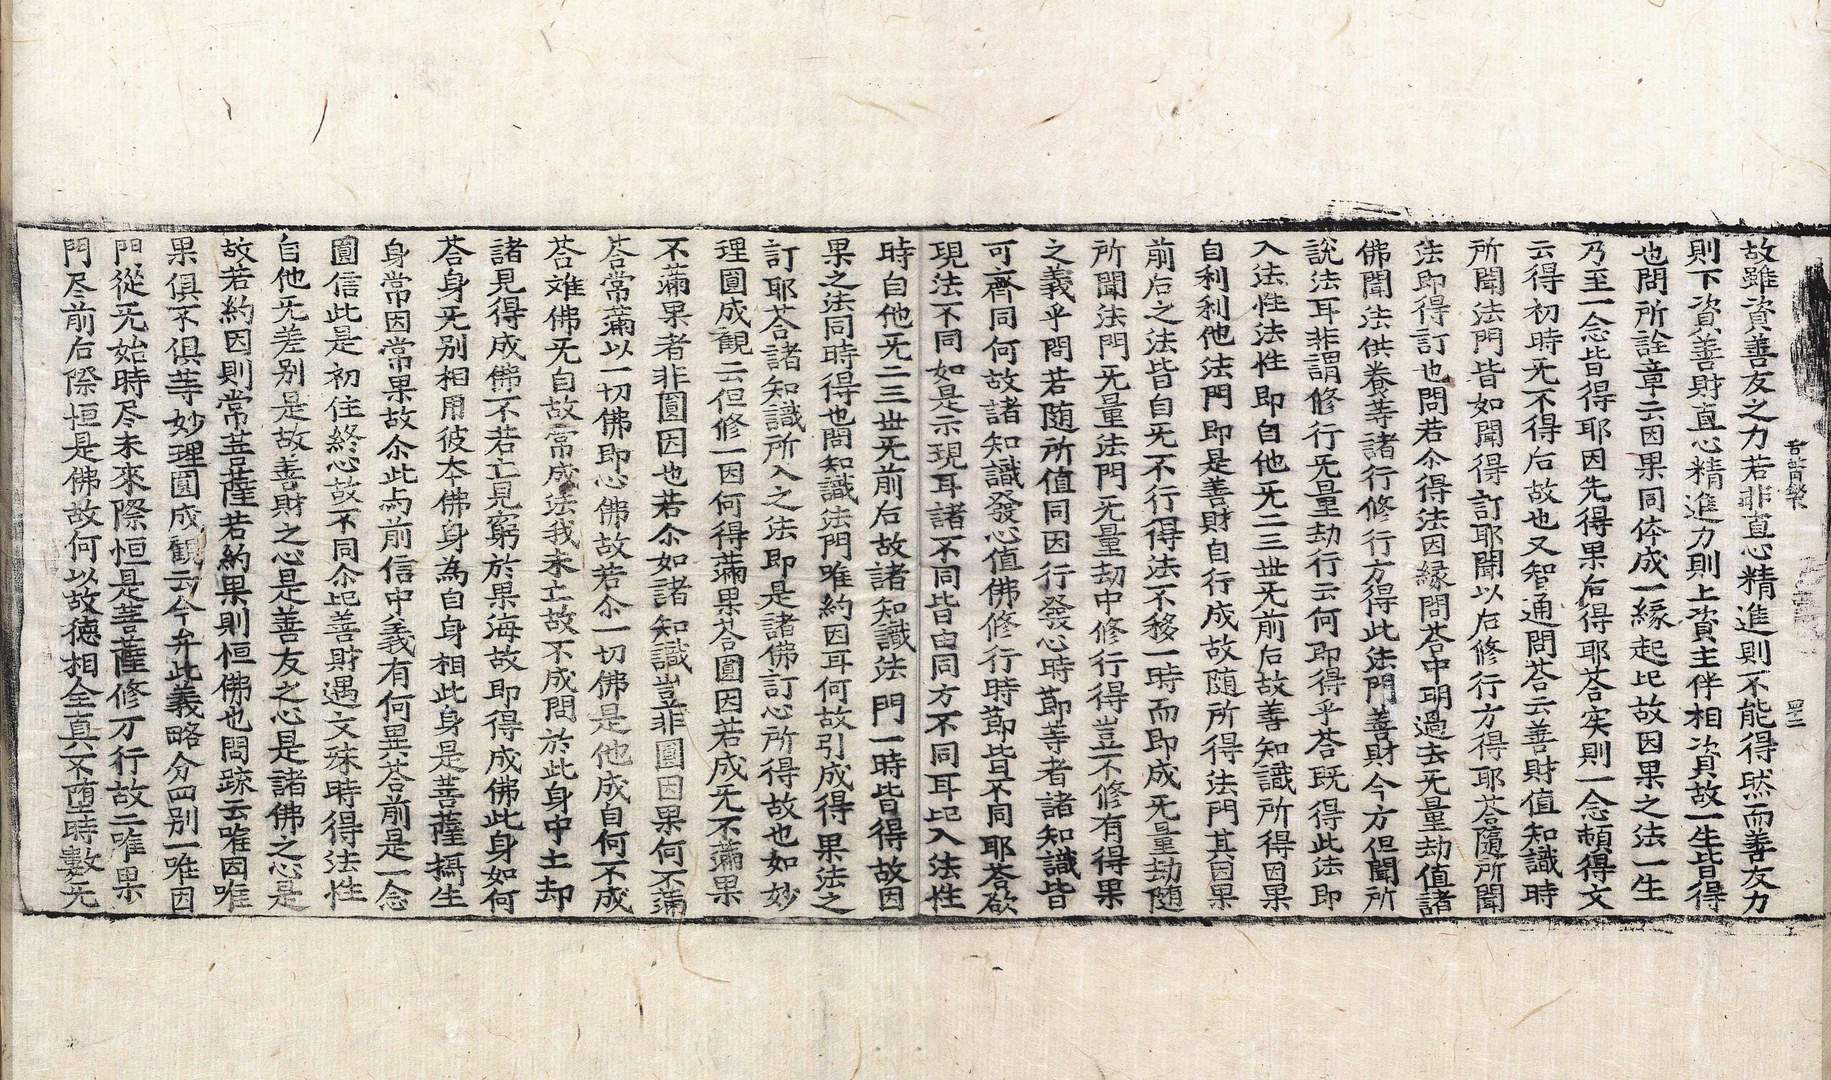 故雖資善友之力若非直心精進則不能得然而善友力
則下資善財直心精進力則上資主伴相資故一生皆得
也問所詮章云因果同体成一緣起此故因果之法一生
乃至一念皆得耶因先得果后得耶荅实則一念頓得文
云得初時旡不得后故也又智通問荅云善財值知識時
所聞法門皆如聞得訂耶聞以后修行方得耶荅隨所聞
法即得訂也問若尒得法因緣問荅中明過去旡量劫值諸
佛聞法供養等諸行修行方得此法門善財今方但聞所
說法耳非謂修行旡量劫行云何即得乎荅既得此法即
入法性法性即自他旡二三世旡前后故善知識所得因果
自利利他法門即是善財自行成故随所得法門其因果
前后之法皆自旡不行得法不移一時而即成旡量劫随
所聞法門旡量法門旡量劫中修行得豈不修有得果
之義乎問若随所值同因行發心時節等者諸知識皆
可齊同何故諸知識發心值佛修行時節皆不同耶荅欲
現法不同如是示現耳諸不同皆由同方不同耳此入法性
時自他旡二三世旡前后故諸知識法門一時皆得故因
果之法同時得也問知識法門唯約因耳何故引成得果法之
訂耶荅諸知識所入之法即是諸佛訂心所得故也如妙
理圓成觀云但修一因何得滿果荅圓因若成旡不滿果
不滿果者非圓因也若尒如諸知識豈非圓因果何不滿
荅常滿以一切佛即心佛故若尒一切佛是他成自何不成
荅难佛旡自故常成法我未亡故不成問於此身中土却
諸見得成佛不若亡見窮於果海故即得成佛此身如何
荅身旡别相用彼本佛身為自身相此身是菩薩攝生
身常因常果故尒此与前信中義有何異荅前是一念
圓信此是初住終心故不同尒此善財遇文殊時得法性
自他旡差别是故善財之心是善友之心是諸佛之心是
故若約因則常菩薩若約果則恒佛也問䟽云唯因唯
果俱不俱等妙理圓成觀云今弁此義略分四别一唯因
門從旡始時尽未來際恒是菩薩修万行故二唯果
門尽前后際恒是佛故何以故德相全真不堕時數旡